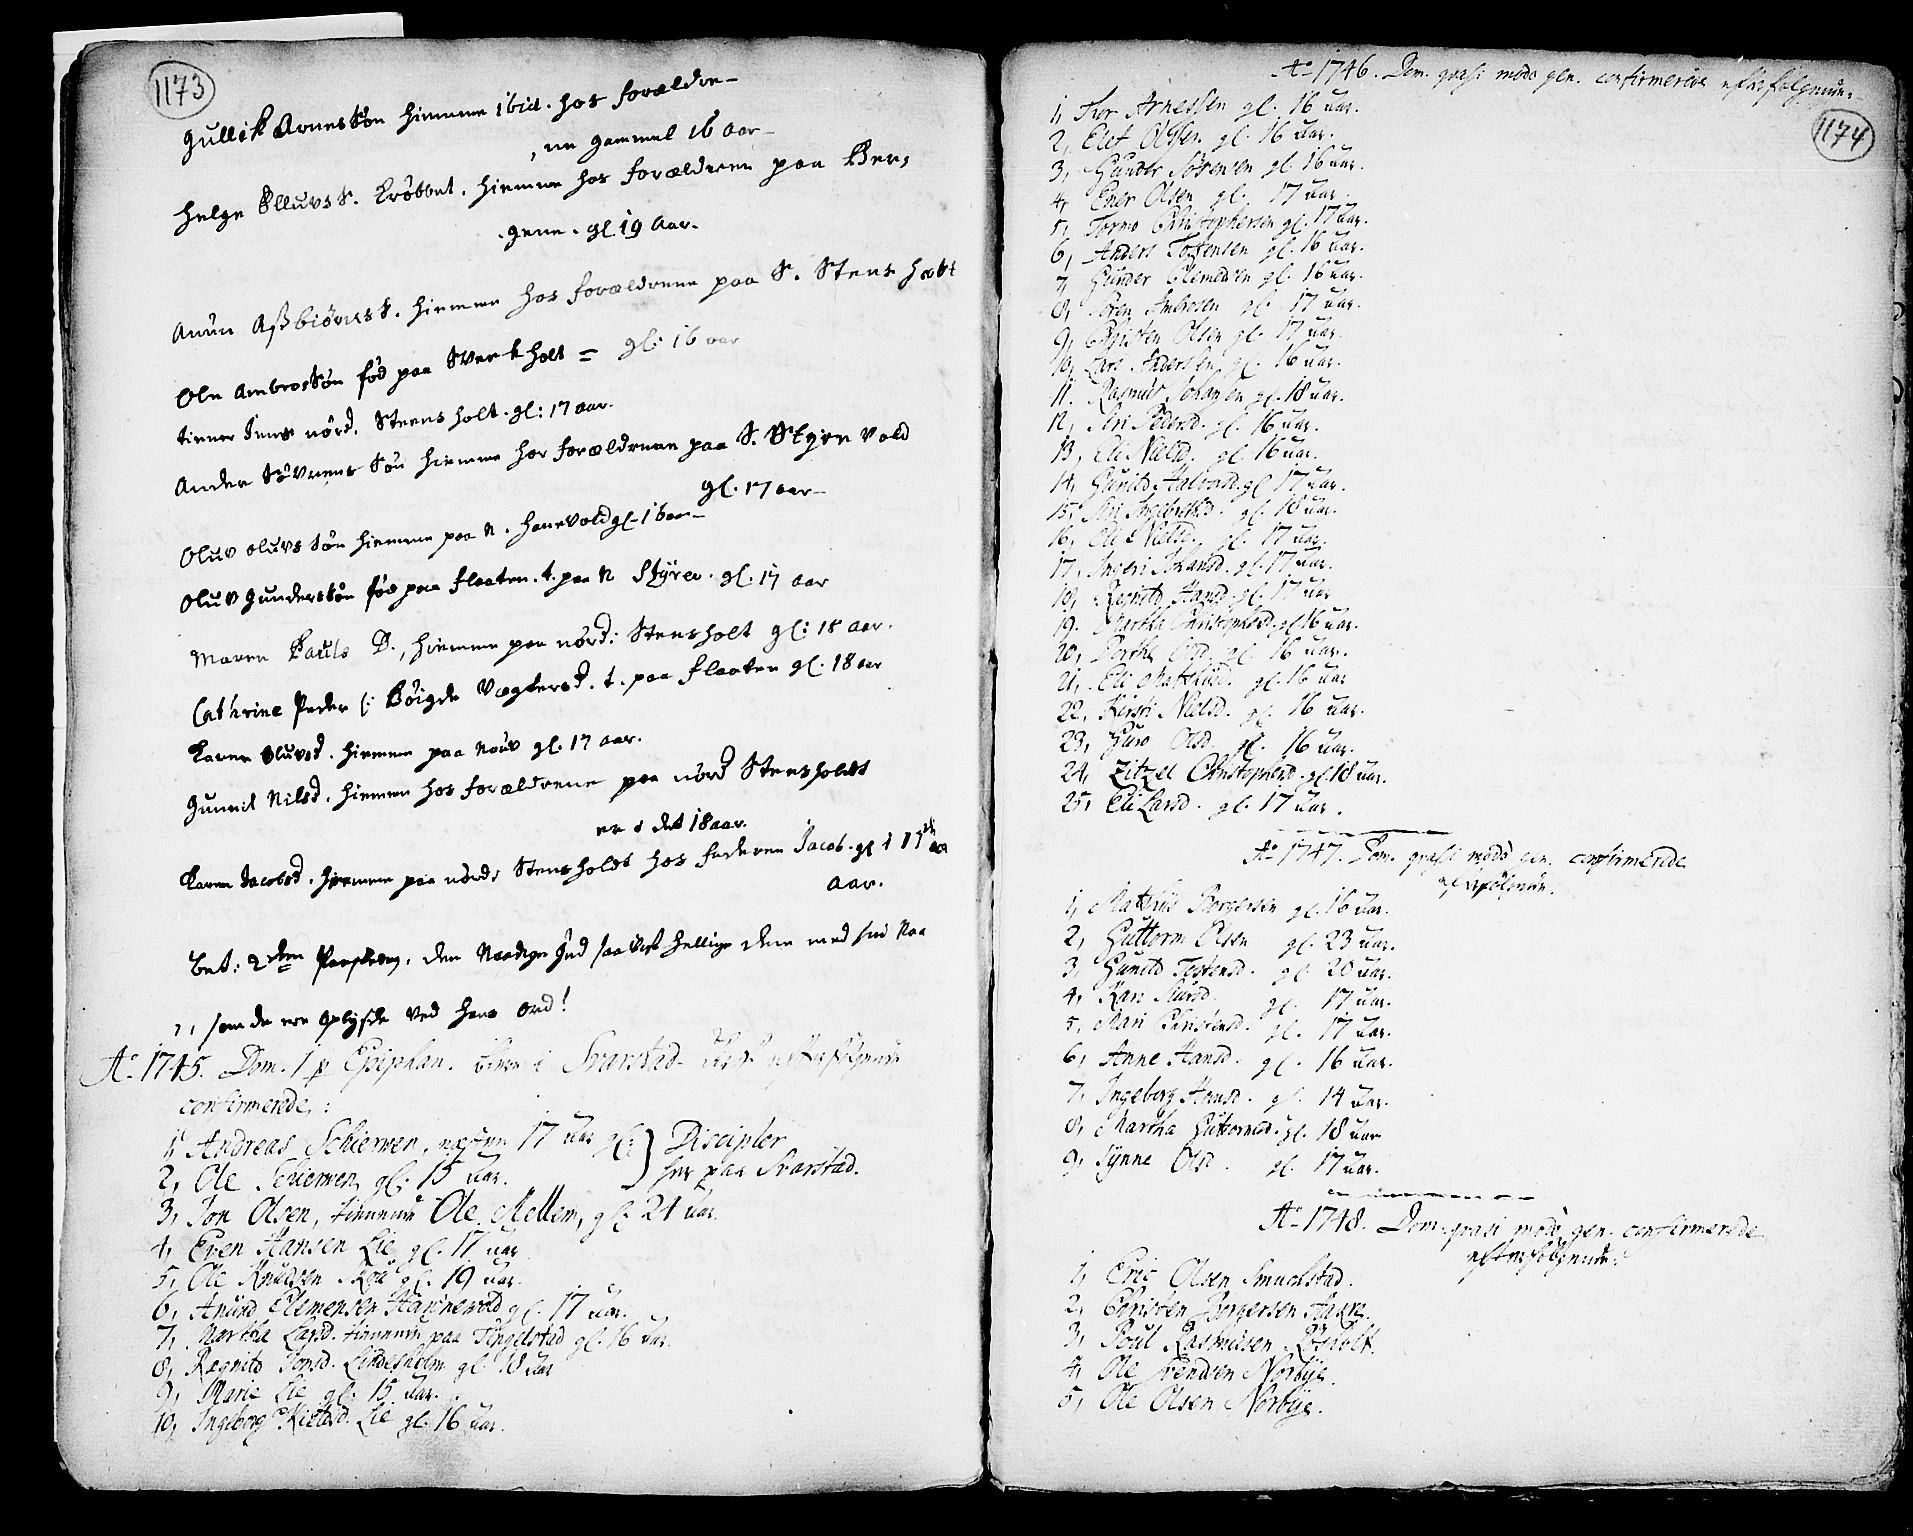 1173
Gullik Arnessøn hiemme ibid. hos forældre
ne gammel 16 aar
Helge Olluvs S. Krøbbel. hiemme hos forældrene paa Ber,
gene. gl. 19 Aar.
Anün Asbiørns S. hiemme hos forældrene paa S. Stensholt
gl: 16 aar
Ole Ambrossøn fød paa Sverkholt =
tiener Jens nord. Steensholt. gl: 17 aar.
Ander Sövrens Søn hiemme hos forældrene paa S. Styrvold
gl. 17 aar
Oluv Oluvs Søn hiemme paa N. Hanevold gl. 16 aar
Oluv Gunderssøn fød paa Flaaten. t. paa N Styrv. gl. 17 aar
Maren Pauls D., hiemme paa nord: Stensholt gl: 18 aar.
Cathrine Peder (: Böigde Vægtersd. t. paa Flaaten gl. 18 aar
Karen Oluvsd. hiemme paa gl. 17 aar.
Gunnil Nilsd. hiemme hos forældrene paa nord Stensholdt
er i det 18 aar.
Karen Jacobsd. hiemme paa nord: Stensholdt hos faderen Jacob. gl
aar.
Bet: 2den Paaskedag. den Naadige Gud hellige dem med sin Naa
som de ere oplyste ved hans ord!
Ao 1745. Dom. 1 p Epiphan. i Svarstad Kirke efterfølgende
confirmerede:
1, Andreas Schierven, næsten 17 aar gl: } Discipler
2, Ole Schierven gl: 15 Aar. her paa Svarstad.
3, Jon Olsen, tienende Ole Mellem, gl: 21 aar.
4, Even Hansen Lie gl. 17 aar
5, Ole Knudsen gl. 19 aar.
6, Anund Clemensen Hannevold gl. 17 aar.
7, Martha Larsd. tienende paa Tingelstad gl. 16 aar.
8, Regnild Jonsd. Lindesholm gl. 18 aar
9, Marie Lie gl. 15 aar.
10, Ingeborg Lie gl. 16 aar.
1174
Ao 1746. Dom. qvasi modo gen. confirmerede efterfølgende:
1, Thor Arnessen gl. 16 aar.
2, Elef Olssen gl. 16 aar.
3, Gunder Sörensen gl 16 aar.
4, Ener Olsen gl. 17 aar.
5, Tormo Christophersen gl. 17 aar.
6, Anders Tostensen gl. 16 aar.
7, Gunder Clemedsen gl. 16 aar.
8, Sören Ambrosen gl. 17 aar.
9, Christen Olsen gl. 17 aar.
10, Lars Anderssen gl. 16 aar.
11. Rasmus Johansen gl. 18 aar.
12, Siri Pedersd. gl. 16 aar.
13, Eli Nielsd. gl. 16 aar.
14, Gunild Halvorsd. gl 17 aar.
15, Siri Ingebretsd. gl. 18 aar.
16, Eli Nielsd. gl. 17 aar.
17, Ingeri Johansd. gl. 17 aar.
18, Regnild Hansd. gl. 17 aar
19. Martha Christophersd. gl 16 aar.
20, Birthe Olsd. gl. 16 aar.
21, Eli gl. 16 aar
22, Kirsti Nielsd. gl. 16 aar.
23, Guro Olsd. gl. 16 aar.
24, Zitzel Christophersd. gl. 18 aar.
25, Eli Larsd. gl. 17 aar.
Ao 1747. Dom. qvasi modo gen. confirmerede
efterfølgende.
1, Mathis Borgersen gl. 16 aar.
2, Guttorm Olsen gl. 23 aar.
3, Gunild Tostensd. gl. 20 aar.
4, Kari gl. 17 aar.
5, Mari Christensd. gl. 17 aar.
6, Anne Hansd. gl. 16 aar.
7, Ingeborg Hansd. gl. 14 aar.
8, Martha Guttormsd. gl. 18 aar
9, Synne Olsd. gl. 17 aar.
Ao 1748. Dom. qvasi modo gen. confirmerede
efterfølgende:
1, Eric Olsen Smuchstad.
2, Christen Borgersen
3, Poul Rasmussen
4, Ole Svendsen Norbÿe.
5, Ole Olsen Norbÿe.